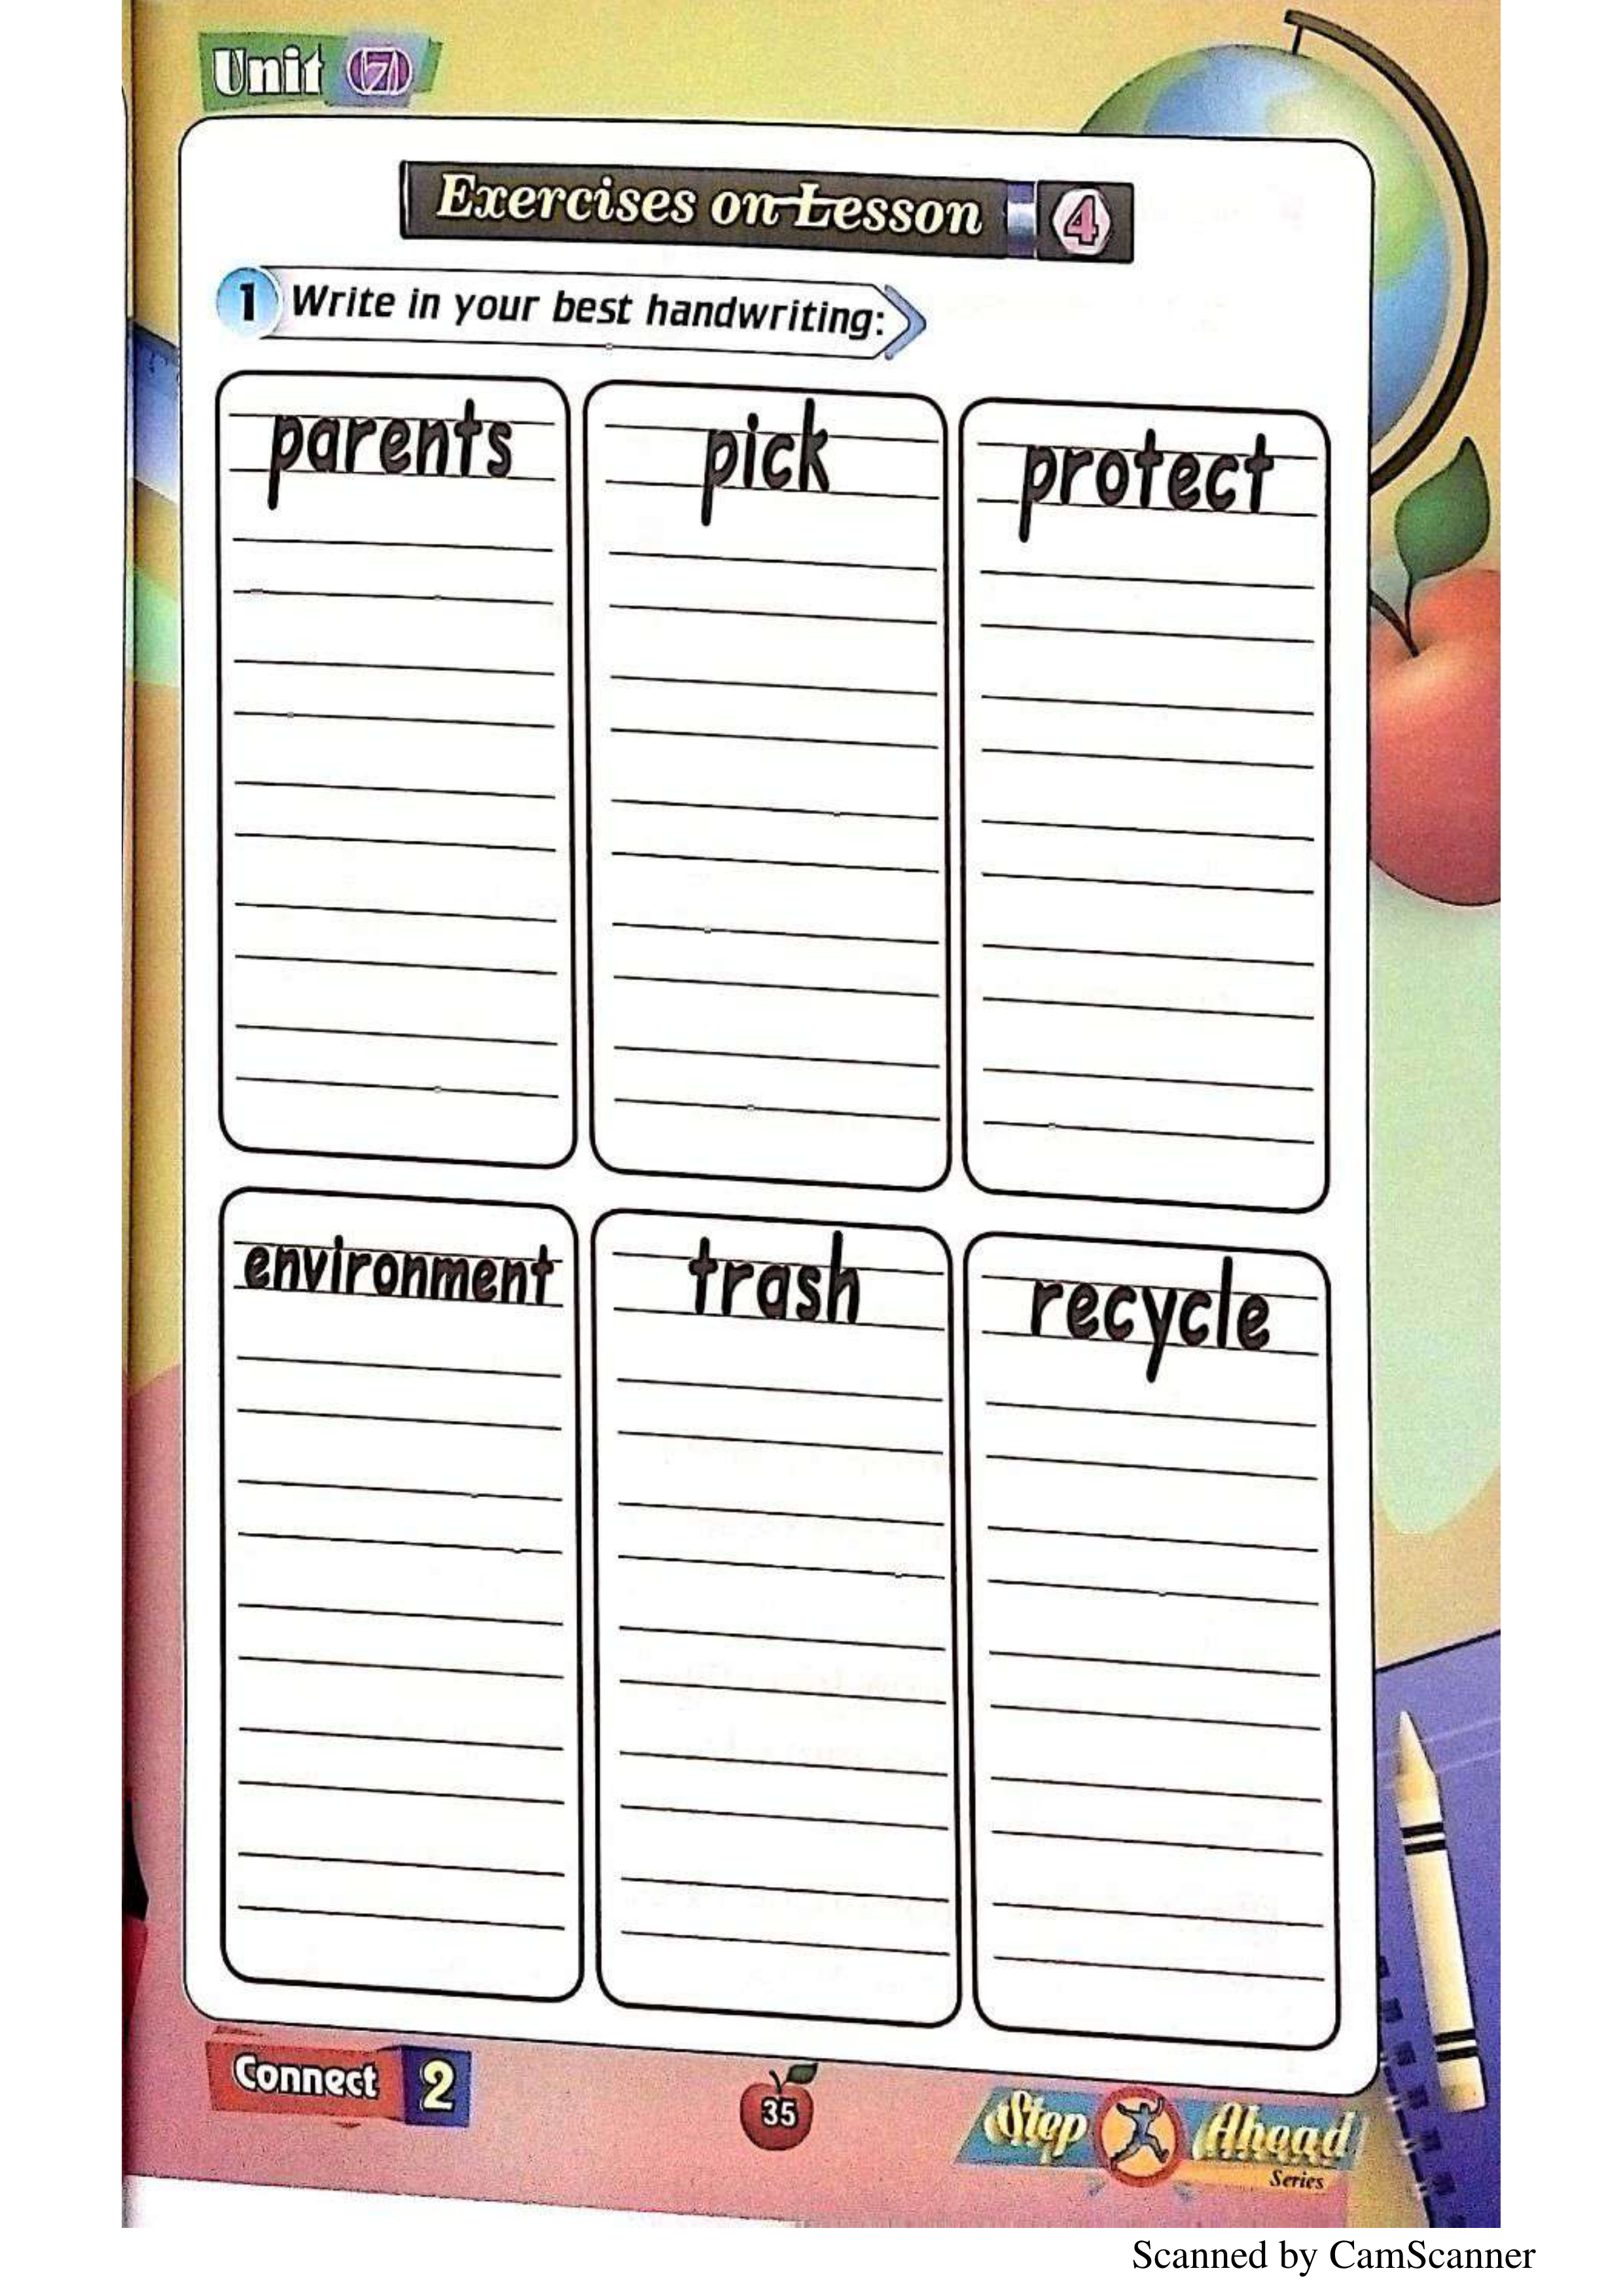 Unit 7
Exercises on Lesson 4
1 Write in your best handwriting:
parents pick protect
environment trash recycle
Connect 2
35
Step Ahead
Series
Scanned by CamScanner